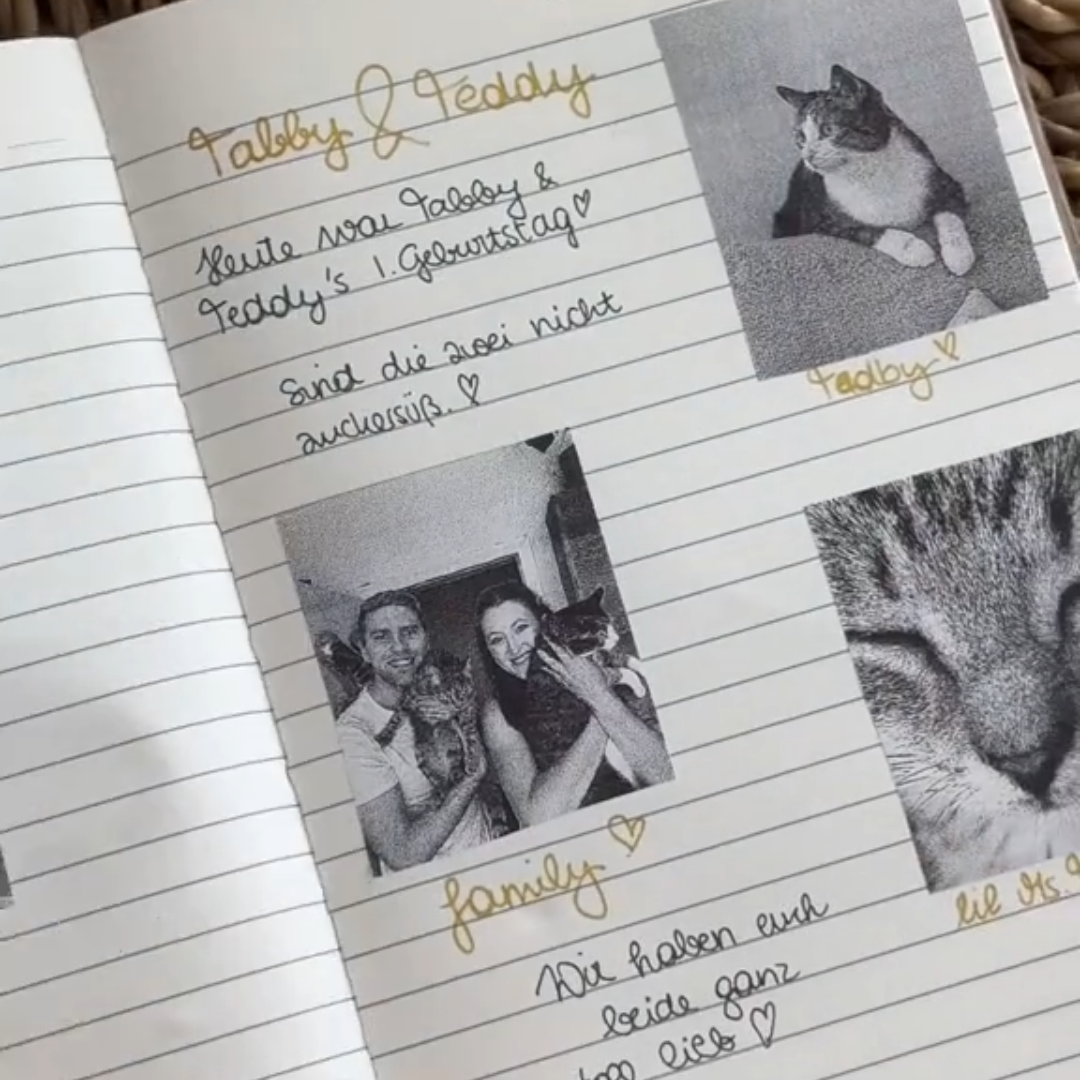 Tabby & Teddy
Heute war Tabby &
Teddy's 1. Geburtstag♡
Sind die zwei nicht
zuckersüß. ♡
Tabby♡
family ♡
lil Ms.
Wir haben euch
beide ganz
lieb ♡